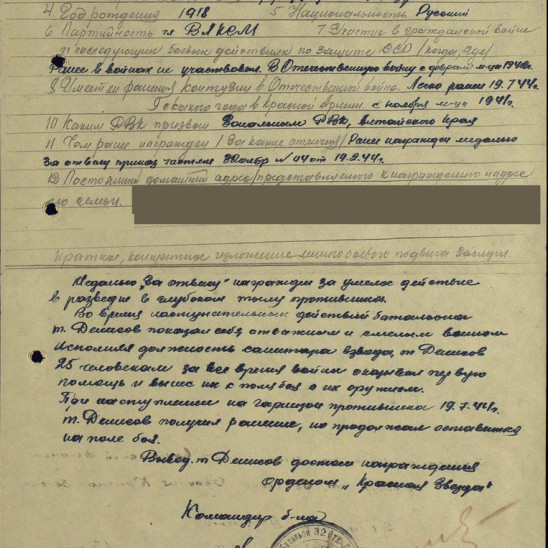 4 Год рождения 1918 5 Национальность Русский
6 Партийность чл ВЛКСМ 7 Участие в гражданской войне
и последующих боевых действиях по защите СССР /когда, где/
Ранее в войнах не участвовал. В Отечественную войну с февраля м-ца 1942г.
8 Имеет ли ранения и контузии в Отечественной войне. Легко ранен 19.7.44г.
9 с какого года в Красной Армии с ноября м-ца 1941г.
10 Каким РВК призван РВК, Алтайского края
11 Чем ранее награжден /за какие отличия/ Ранее награжден медалью
За отвагу приказ частям от 19.2.44г.
12 Постоянный домашний адрес/представляемого к награждению и адрес
его семьи.
Краткое, конкретное изложение личного боевого подвига заслуг.
Медалью „За отвагу" награжден за умелое действие
в разведке в глубоком тылу противника.
Во время наступательных действий батальона
т. Денисов показал себя отважным и смелым воином
Исполняя должность санитара взвода, т. Денисов
25 человекам за все время войны оказывал первую
помощь и вынес их с поля боя с их оружием.
При наступлении на гарнизон противника 19.7.44г.
т. Денисов получил ранение, но продолжал оставаться
на поле боя.
Вывод: т Денисов достоин награждения
Орденом „Красная Звезда"
Командир б-на